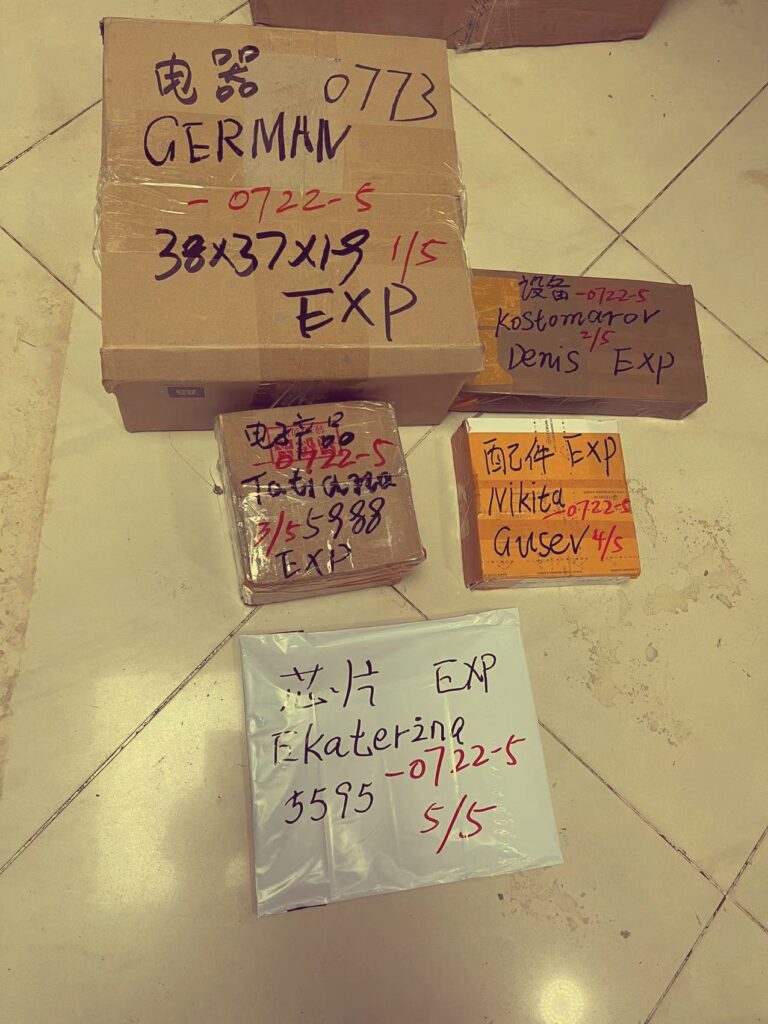 电器 0773
GERMAN
-0722-5
38x37x19 1/5
EXP
设备 -0722-5
Kostomarov
2/5
Denis EXP
电子产品
-0722-5
Tatiana
3/5 5988
EXP
配件 EXP
Nikita -0722-5
Gusev 4/5
芯片 EXP
Ekaterina
-0722-5
5595
5/5